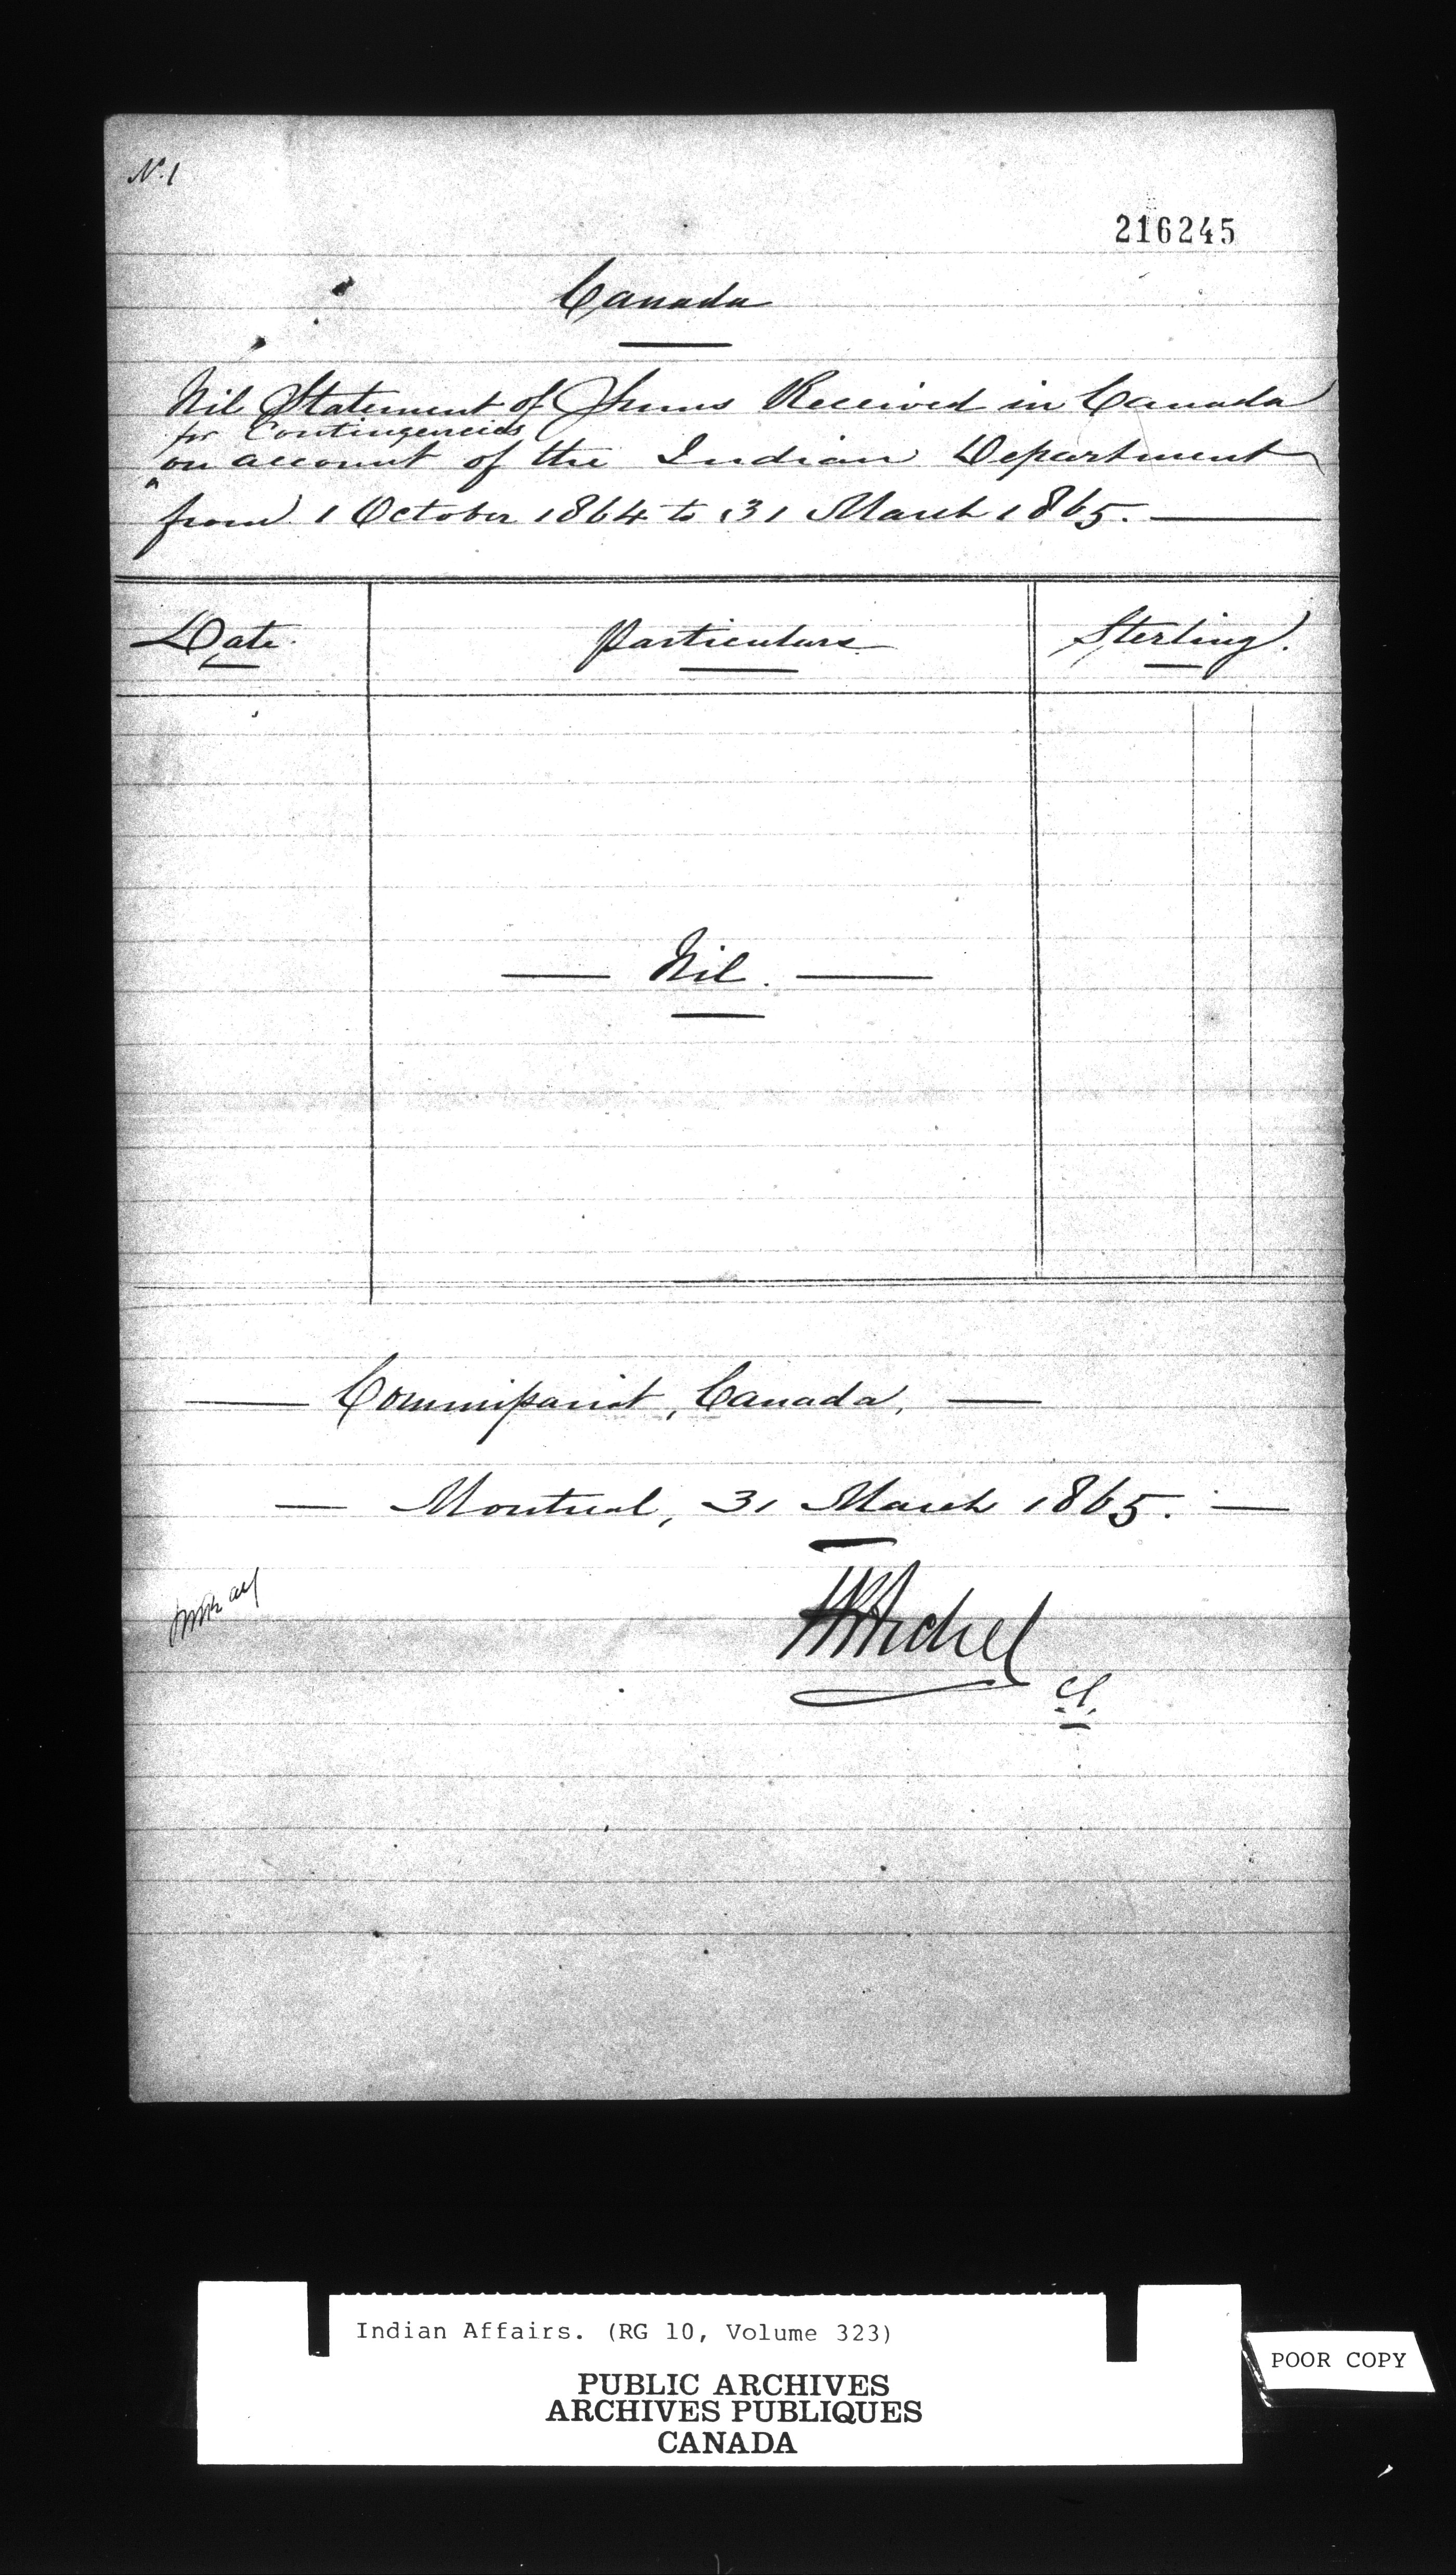 No. 1
216245
Canada
Nil Statement of Sums Received in Canada
for Contingencies
on account of the Indian Department
from 1 October 1864 to 31 March 1865.
Date. Particulars Sterling.
Nil.
Commissariat, Canada,
Montreal, 31 March 1865.
Indian Affairs. (RG 10, Volume 323)
PUBLIC ARCHIVES
ARCHIVES PUBLIQUES
CANADA
POOR COPY